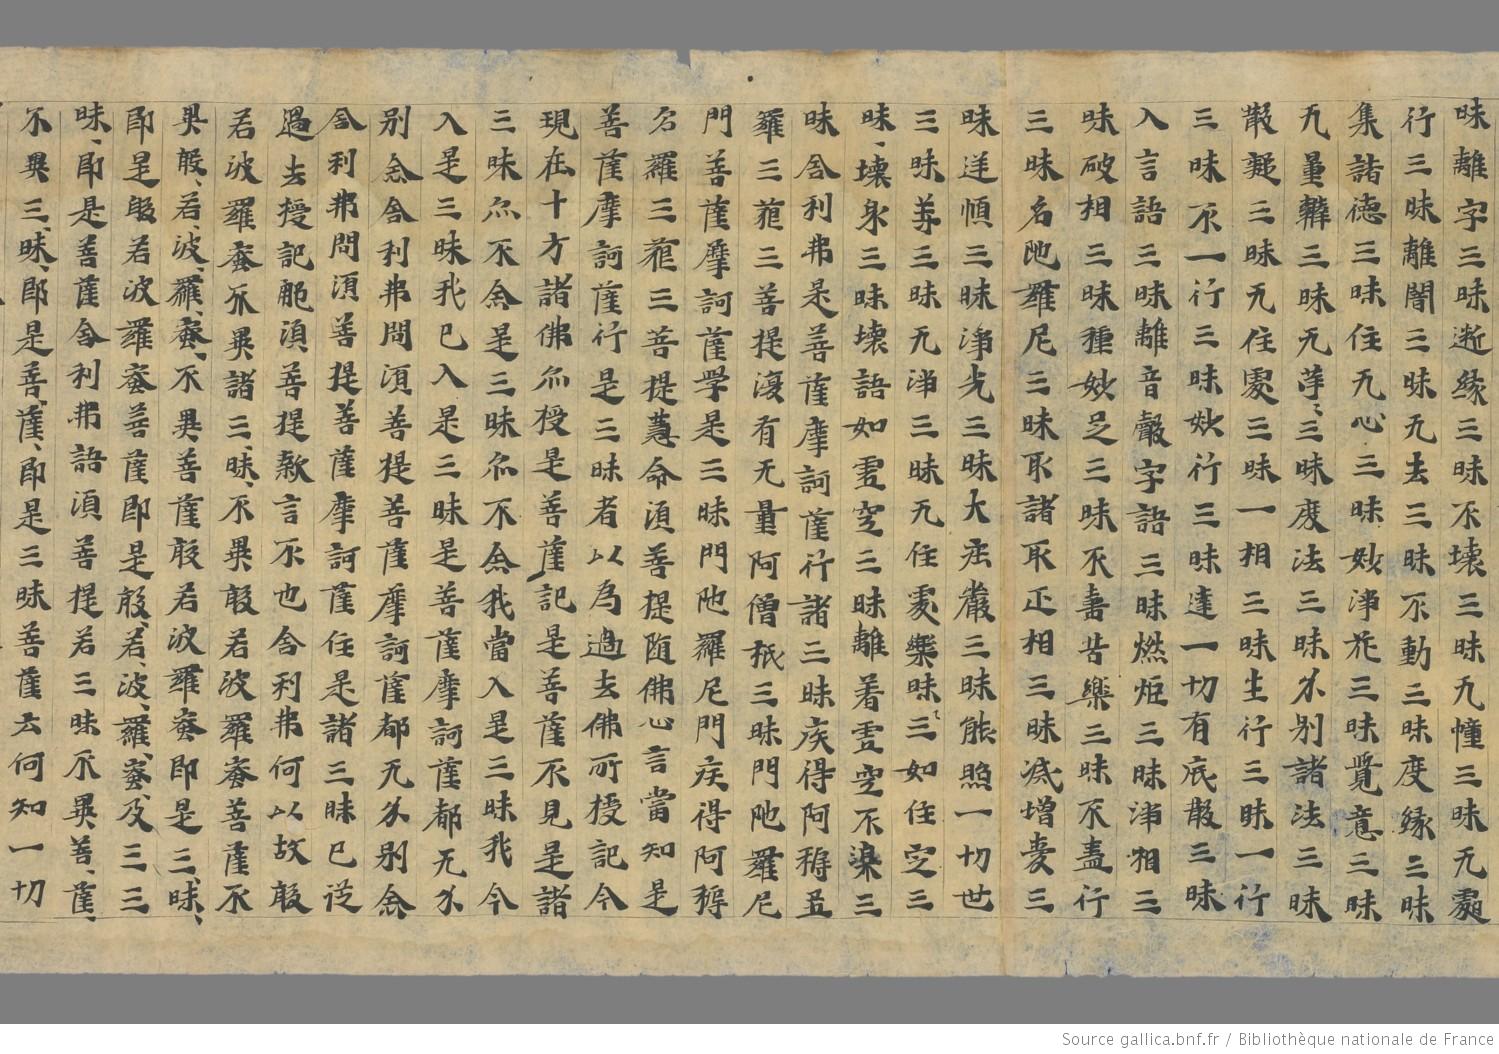 昧離字三昧逝緣三昧不壞三昧九幢三昧无翳
行三昧離闇三昧无去三昧不動三昧度緣三昧
集諸德三昧住无心三昧妙淨花三昧覺意三昧
九量辯三昧无等〻三昧度法三昧分別諸法三昧
散疑三昧无住處三昧一相三昧生行三昧一行
三昧不一行三昧妙行三昧達一切有底散三昧
入言語三昧離音聲字語三昧燃炬三昧淨相三
昧破相三昧種妙足三昧不喜苦樂三昧不盡行
三昧名陁羅尼三昧取諸耶正相三昧滅增愛三
昧逆慎三昧淨光三昧大莊嚴三昧能照一切世
三昧等三昧无淨三昧无住處樂昧三〻如住定三
昧壞身三昧壞語如虛空三昧離著虛空不染三
昧舍利弗是菩薩摩訶薩行諸三昧疾得阿耨五
羅三藐三菩提復有无量阿僧祇三昧門陁羅尼
門菩薩摩訶薩學是三昧門陁羅尼門疾得阿耨
多羅三藐三菩提慧命湏菩提随佛心言當知是
菩薩摩訶薩行是三昧者以為過去佛所授記今
現在十方諸佛尒授是菩薩記是菩薩不見是諸
三昧尒不念是三昧尒不念我當入是三昧我今
入是三昧我已入是三昧是菩薩摩訶薩都无分
別念舍利弗問湏菩提菩薩摩訶薩都无分別念
舍利弗問湏菩提菩薩摩訶薩住是諸三昧已從
過去授記耶湏菩提歎言不也舍利弗何以故般
若波羅蜜不異諸三昧不異般若波羅蜜菩薩不
異般若波羅蜜不異菩薩般若波羅蜜即是三昧
即是般若波羅蜜菩薩即是般若波羅蜜及三三
昧即是菩薩舍利弗語湏菩提若三昧不異菩薩
不異三昧即是菩薩即是三昧菩薩云何知一切
Source gallica.bnf.fr / Bibliothèque nationale de France